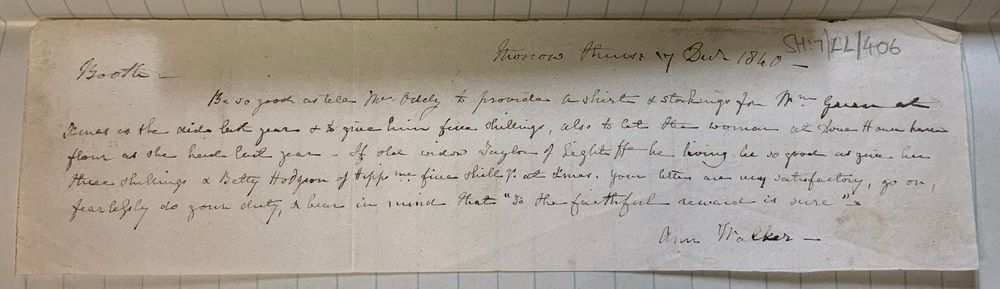 SH:7/LL/406
Moscow Thurs: 17 Decr 1840 –
Booth –
Be so good as tell Mrs. Oddy to provide a shirt & stockings for Wm Green at
Xmas as she did last year & to give him five shillings, also to let the woman at Dove House have
flour as she had last year – If old widow Taylor of Lightffe be living be so good as give her
three shillings & Betty Hodgson of Hippme five shillgs. at Xmas. Your letters are very satisfactory, go on,
fearlessly do your duty, & bear in mind that "to the faithful reward is sure" –
Ann Walker –